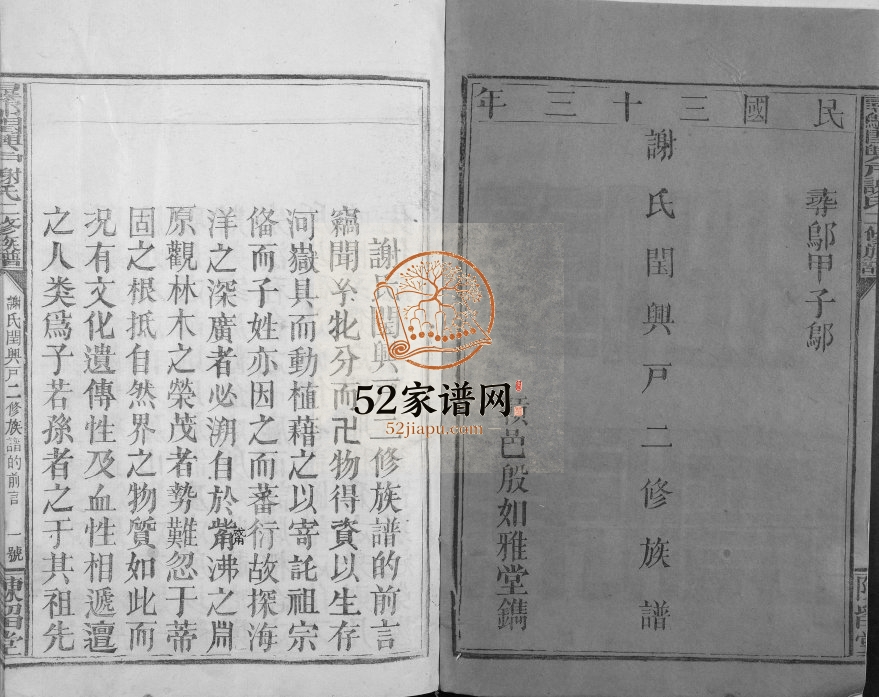 民國三十三年
尋鄔甲子鄔
謝氏閏興戶二修族譜
邑殷如雅堂鐫
謝氏閏興 二修族譜的前言
竊聞 牝分而卍物得資以生存
河嶽具而動植藉之以寄託祖宗
俻而子姓亦因之而蕃衍故探海
洋之深廣者必溯自於觱沸之淵
原觀林木之榮茂者勢難忽于蒂
固之根抵自然界之物質如此而
况有文化遺傳性及血性相遞邅
之人类爲子若孫者之于其祖先
謝氏二修族譜
謝氏閏興戶二修族譜的前言
一號
陳留堂
52家谱网
52jiapu.com